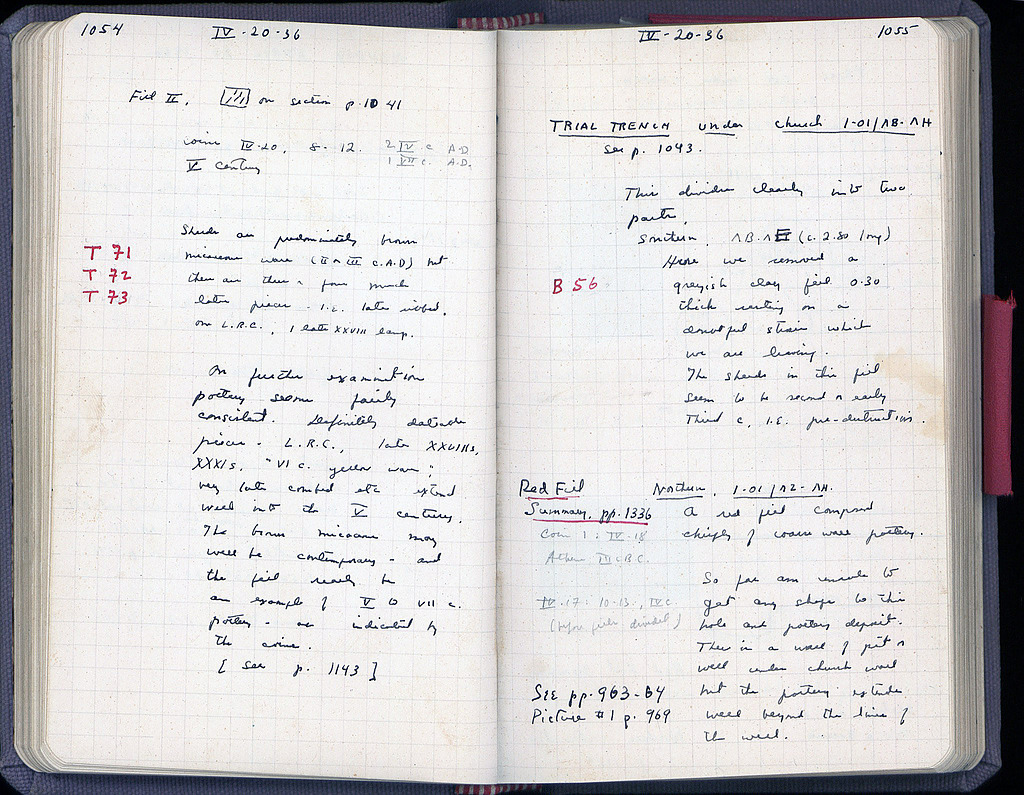 1054 IV-20-36
Fill II, on section p. 1041
coins IV-20, 8-12. 2 IV c A.D
1 VII c. A.D.
V century
Sherds are predominately brown
T 71
micaceous ware (II or III c. A.D) but
T 72
there are three or four much
T 73
later pieces - i.e. late ribbed,
one L.R.C., 1 late XXVIII lamp.
On further examination
pottery seems fairly
consistent. Definitely dateable
pieces - L.R.C., late XXVIIIs,
XXXIs, "VI c. yellow ware",
very late combed etc extend
well into the V century.
The brown micaceous may
well be contemporary - and
the fill really be
an example of V to VII c.
pottery - as indicated by
the coins.
[ See p. 1143 ]
IV-20-36 1055
TRIAL TRENCH under church 1-01/ΛB-ΛH
See p. 1043.
This divides clearly into two
parts,
Southern, (c. 2.80 long)
Here we removed a
B 56
greyish clay fill 0.30
thick resting on a
doubtful stratum which
we are leaving.
The sherds in this fill
seem to be second or early
Third c, i.e. pre-destruction.
Red Fill
Northern, 1-01/ΛZ-ΛH.
Summary, pp. 1336
A red fill composed
Coin 1: IV-18
chiefly of coarse ware pottery.
Athen III c BC.
So far am unable to
IV-17: 10-13, IV c.
get any shape to this
(before fill divided)
hole and pottery deposit.
There is a wall of pit or
well under church wall
See pp. 963-64
but the pottery extends
Picture #1 p. 969
well beyond the line of
the wall.